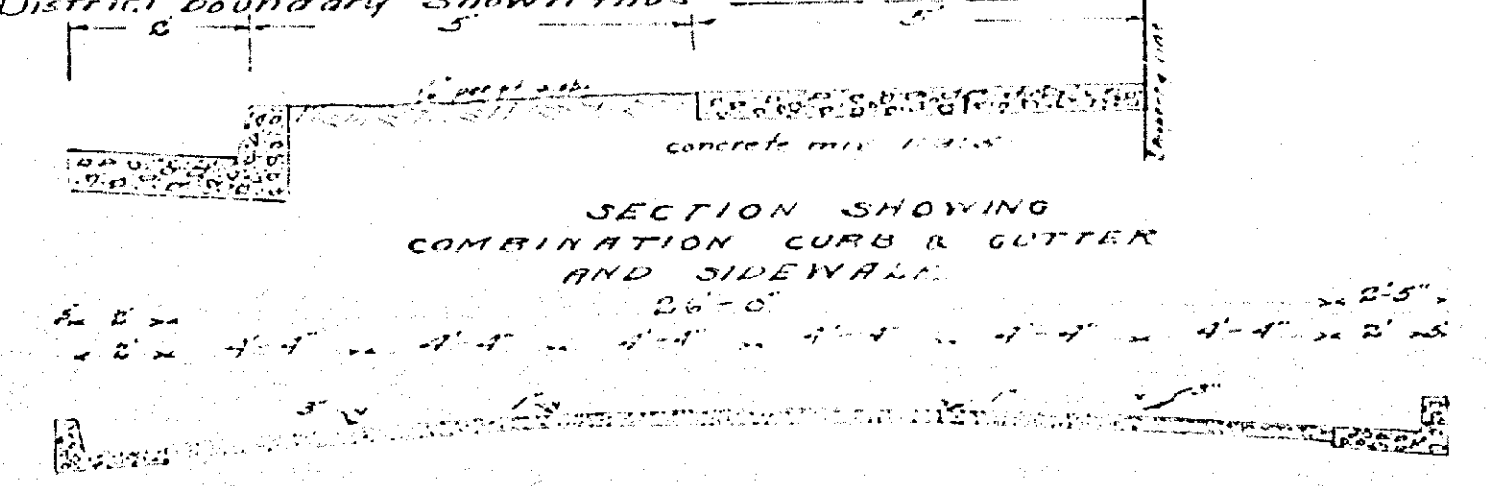 District boundary shown thus
5' 5'
per ft
concrete mix
SECTION SHOWING
COMBINATION CURB & GUTTER
AND SIDEWALK
26'-0"
2' 2'-5"
2' 4'-4" 4'-4" 4'-4" 4'-4" 4'-4" 4'-4" 2'
3"